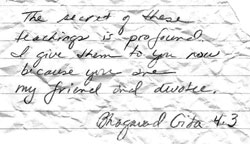 The secret of these
teachings is profound.
I give them to you now
because you are
my friend and devotee.
Bhagavad Gita 4:3